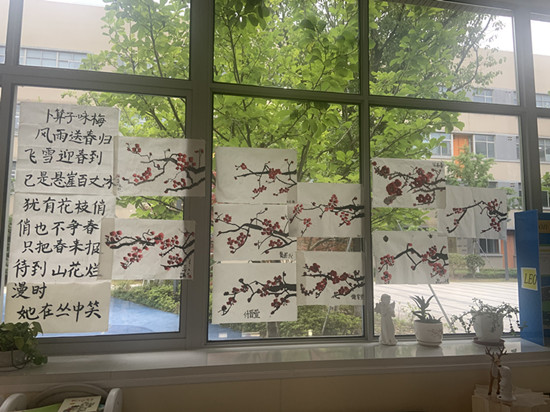 卜算子咏梅
风雨送春归
飞雪迎春到
已是悬崖百丈冰
犹有花枝俏
俏也不争春
只把春来报
待到山花烂
漫时
她在丛中笑